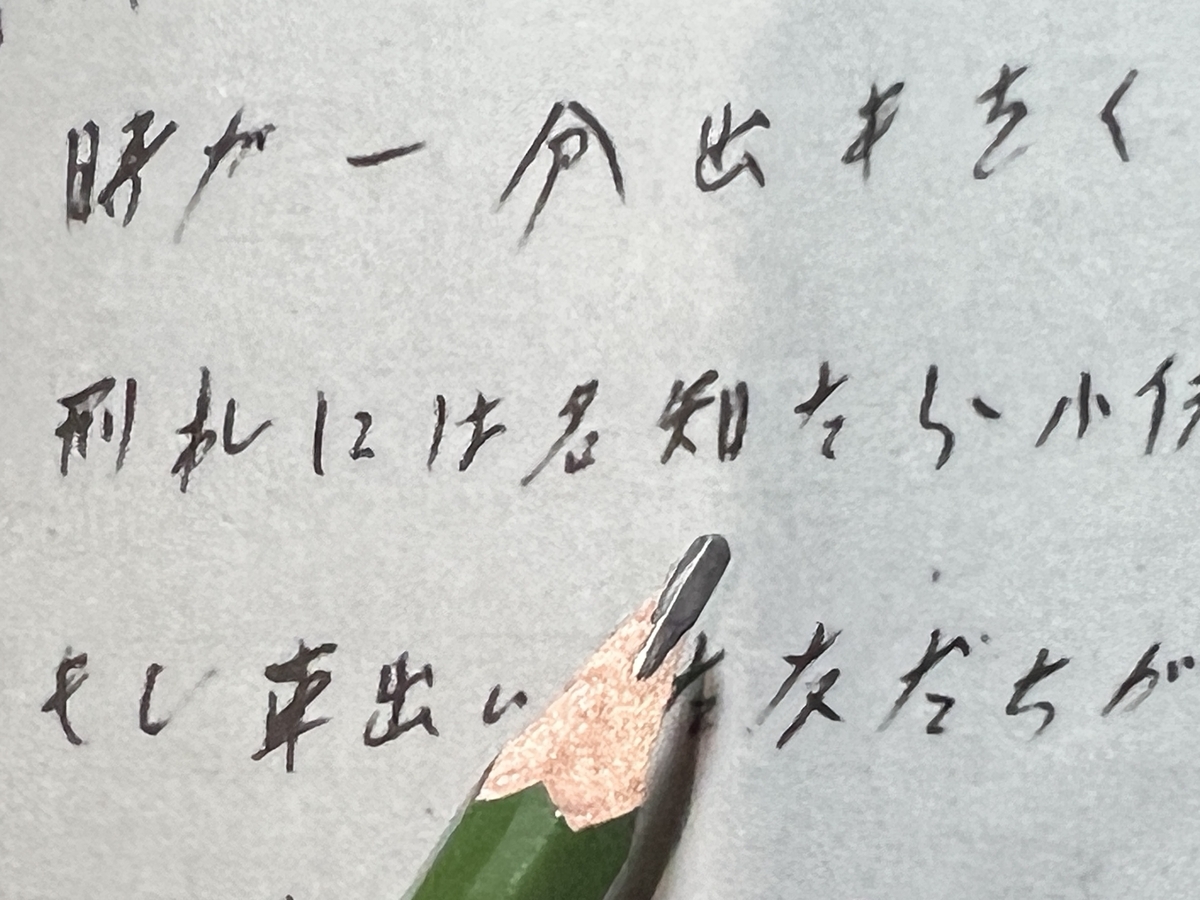 時が一分出キをく
刑札には名知たらい小
もし車出い 友だちが